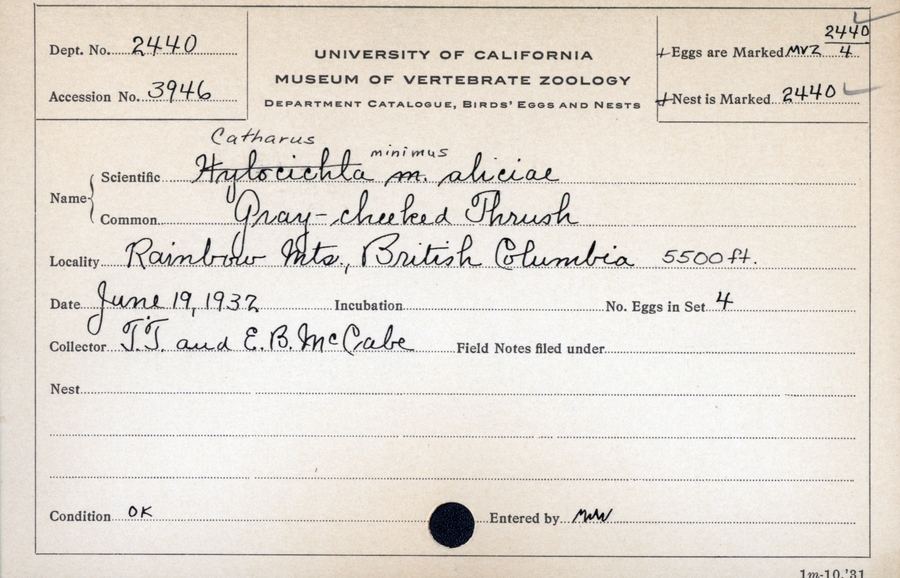 Dept. No. 2440
Accession No. 3946
UNIVERSITY OF CALIFORNIA
MUSEUM OF VERTEBRATE ZOOLOGY
DEPARTMENT CATALOGUE, BIRDS' EGGS AND NESTS
2440
Eggs are Marked MVZ 4
Nest is Marked 2440
Catharus
minimus
Name Scientific Hylocichla m. aliciae
Common Gray-cheeked Thrush
Locality Rainbow Mts., British Columbia 5500 ft.
Date June 19, 1932 Incubation No. Eggs in Set 4
Collector T.T. and E.B. McCabe Field Notes filed under
Nest
Condition OK Entered by
1m-10,'31